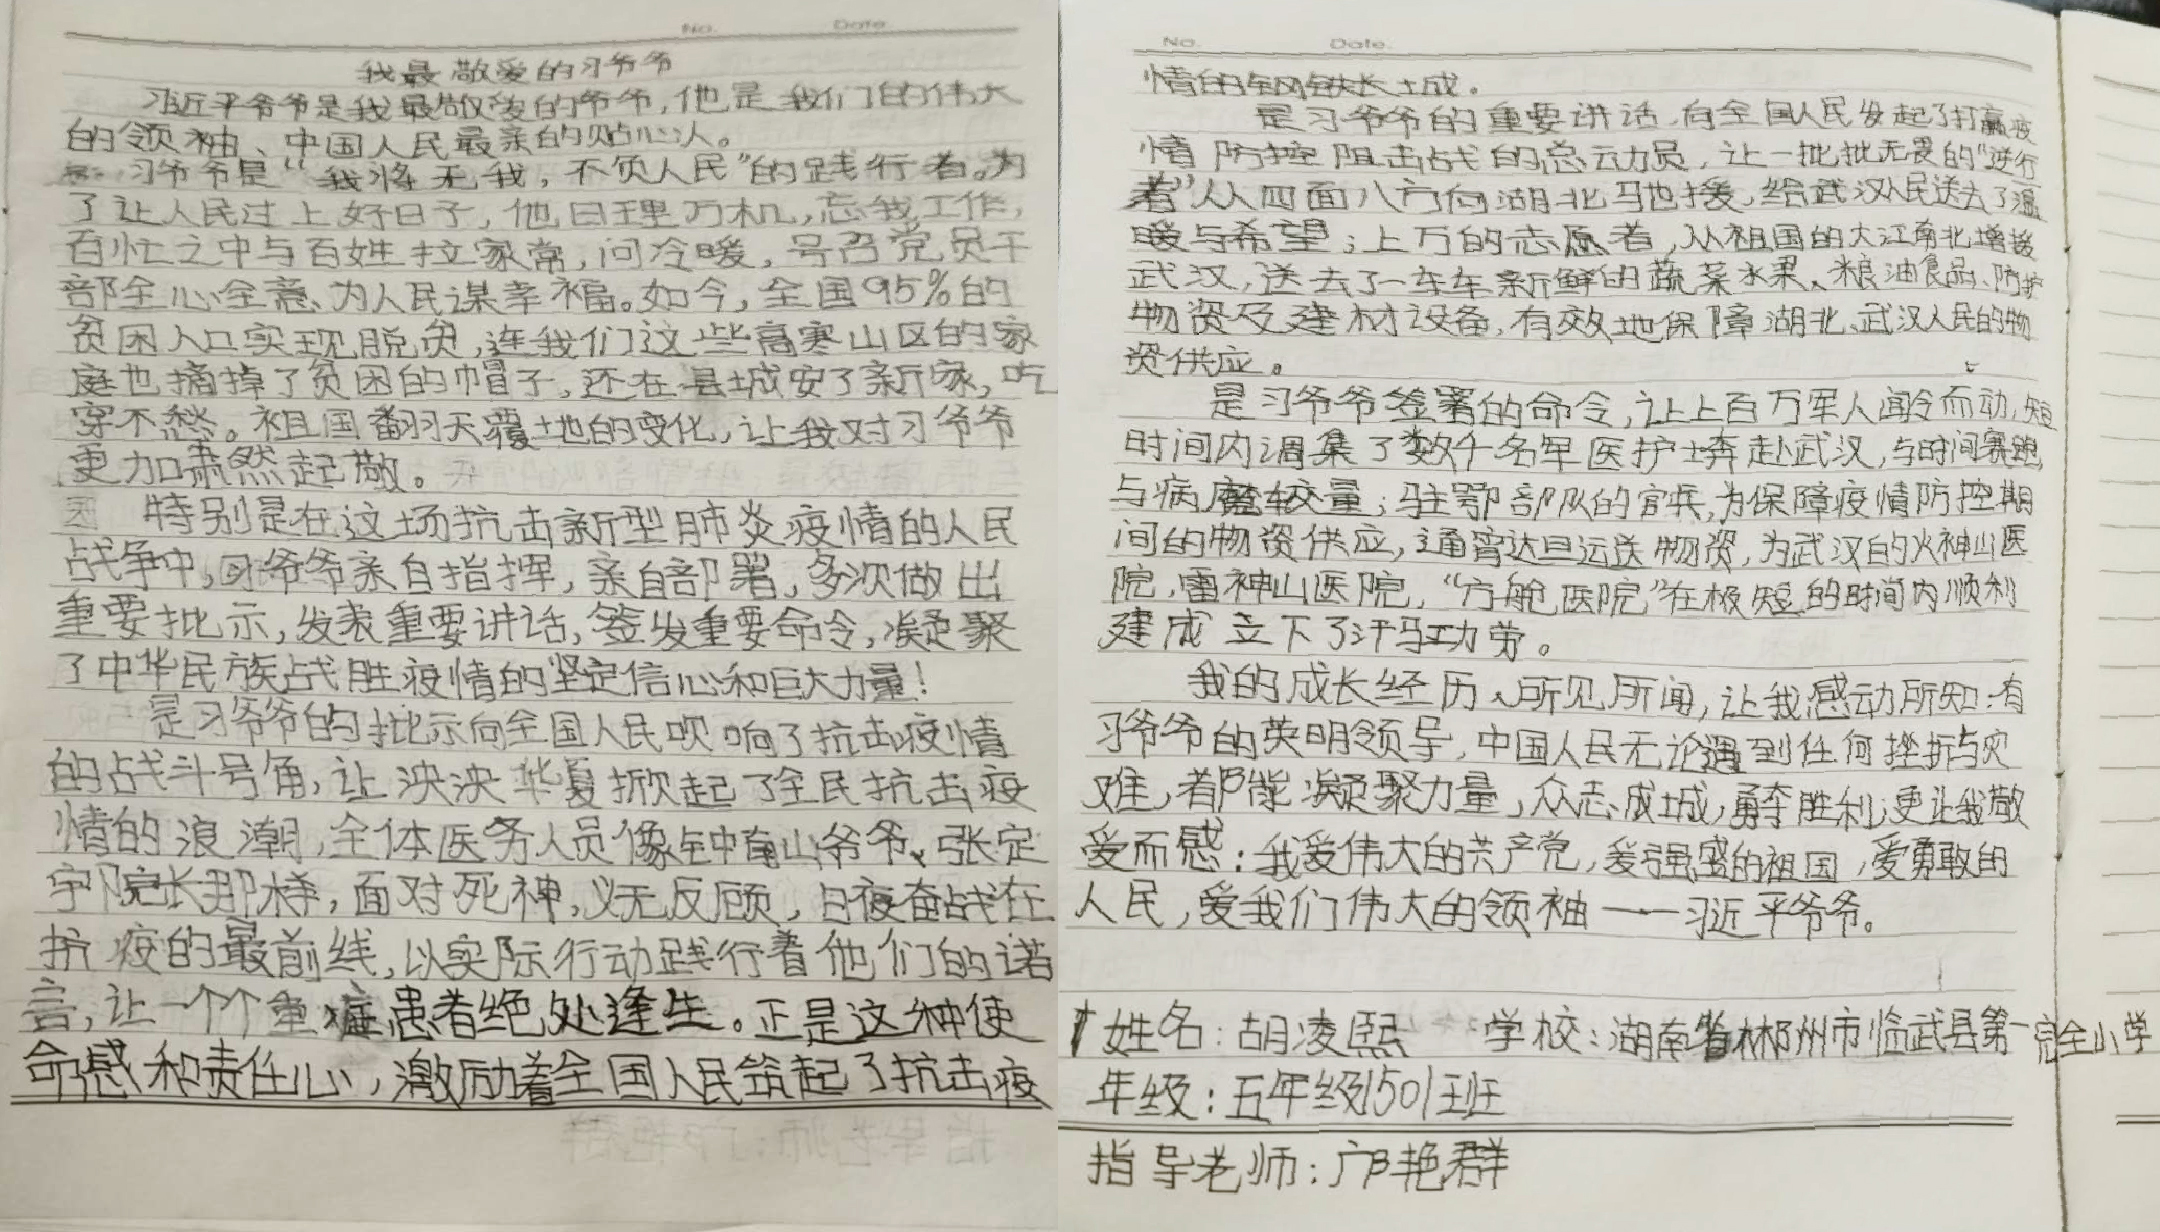 No.
Date
我最敬爱的习爷爷
习近平爷爷是我最敬爱的爷爷,他是我们的伟大
的领袖、中国人民最亲的贴心人。
习爷爷是“我将无我,不负人民”的践行者。为
了让人民过上好日子,他日理万机,忘我工作,
百忙之中与百姓拉家常,问冷暖,号召党员干
部全心全意为人民谋幸福。如今,全国95%的
贫困人口实现脱贫,连我们这些高寒山区的家
庭也摘掉了贫困的帽子,还在县城安了新家,吃
穿不愁。祖国翻天覆地的变化,让我对习爷爷
更加肃然起敬。
特别是在这场抗击新型肺炎疫情的人民
战争中,习爷爷亲自指挥,亲自部署,多次做出
重要批示,发表重要讲话,签发重要命令,凝聚
了中华民族战胜疫情的坚定信心和巨大力量!
是习爷爷的批示向全国人民吹响了抗击疫情
的战斗号角,让泱泱华夏掀起了全民抗击疫
情的浪潮,全体医务人员像钟南山爷爷、张定
宇院长那样,面对死神,义无反顾,日夜奋战在
抗疫的最前线,以实际行动践行着他们的诺
言,让一个个重症患者绝处逢生。正是这种使
命感和责任心,激励着全国人民筑起了抗击疫
No.
Date.
情的钢铁长城。
是习爷爷的重要讲话,向全国人民发起了打赢疫
情防控阻击战的总动员,让一批批无畏的“逆行
者”从四面八方向湖北驰援,给武汉人民送去了温
暖与希望;上万的志愿者,从祖国的大江南北增援
武汉,送去了一车车新鲜的蔬菜水果、粮油食品、防护
物资及建材设备,有效地保障湖北、武汉人民的物
资供应。
是习爷爷签署的命令,让上百万军人闻令而动,短
时间内调集了数千名军医护士奔赴武汉,与时间赛跑,
与病魔较量;驻鄂部队的官兵,为保障疫情防控期
间的物资供应,通宵达旦运送物资,为武汉的火神山医
院,雷神山医院,“方舱医院”在极短的时间内顺利
建成立下了汗马功劳。
我的成长经历、所见所闻,让我感动所知:有
习爷爷的英明领导,中国人民无论遇到任何挫折与灾
难,都能凝聚力量,众志成城,勇夺胜利;更让我敬
爱而感:我爱伟大的共产党,爱强盛的祖国,爱勇敢的
人民,爱我们伟大的领袖——习近平爷爷。
姓名:胡凌熙 学校:湖南省郴州市临武县第一完全小学
年级:五年级1501班
指导老师:邝艳群